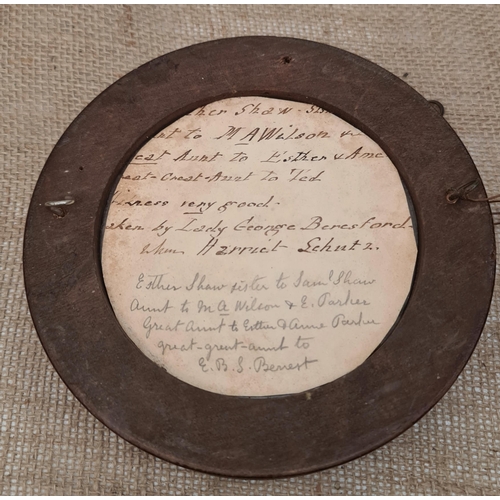 ther Shaw. Sis
nt to M A Wilson &
reat Aunt to Esther & Ann
eat-Great-Aunt to Ted
keness very good.
aken by Lady George Beresford
when Harriet Schutz.
Esther Shaw sister to Saml Shaw
Aunt to M A Wilson & E. Parker
Great Aunt to Esther & Anne Parker
great-great-aunt to
E. B. S.